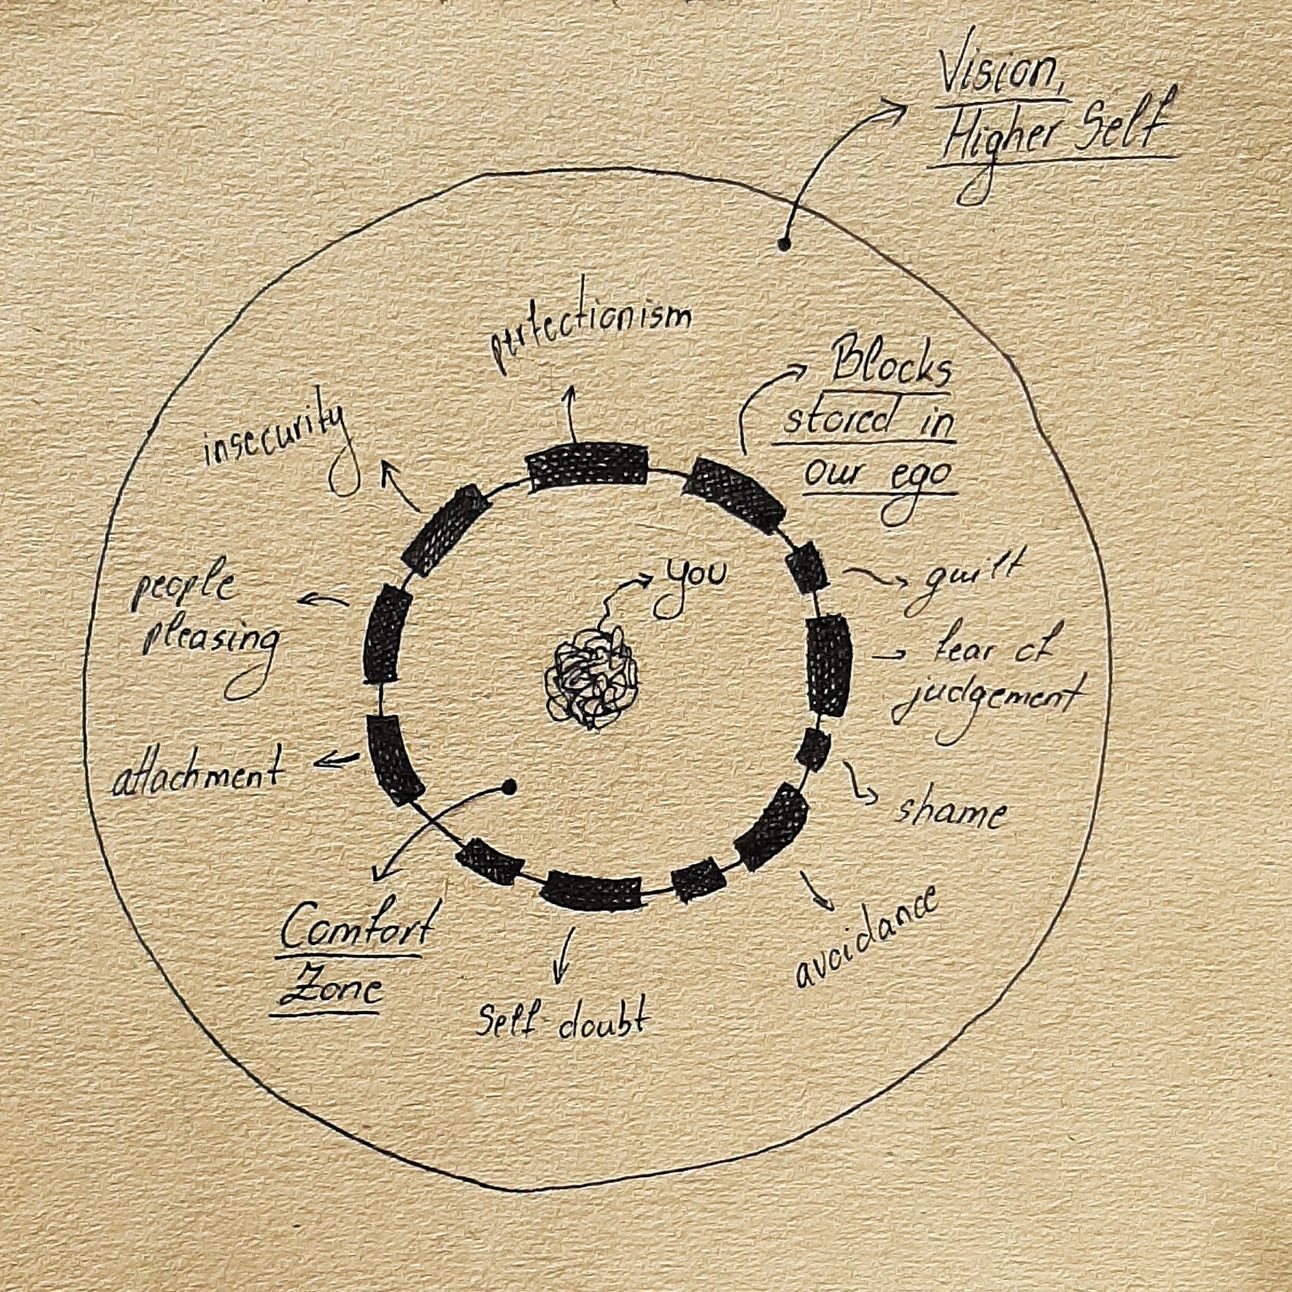 Vision,
Higher Self
perfectionism
Blocks
stored in
our ego
insecurity
you
guilt
people
pleasing
fear of
judgement
attachment
shame
Comfort
Zone
avoidance
Self doubt